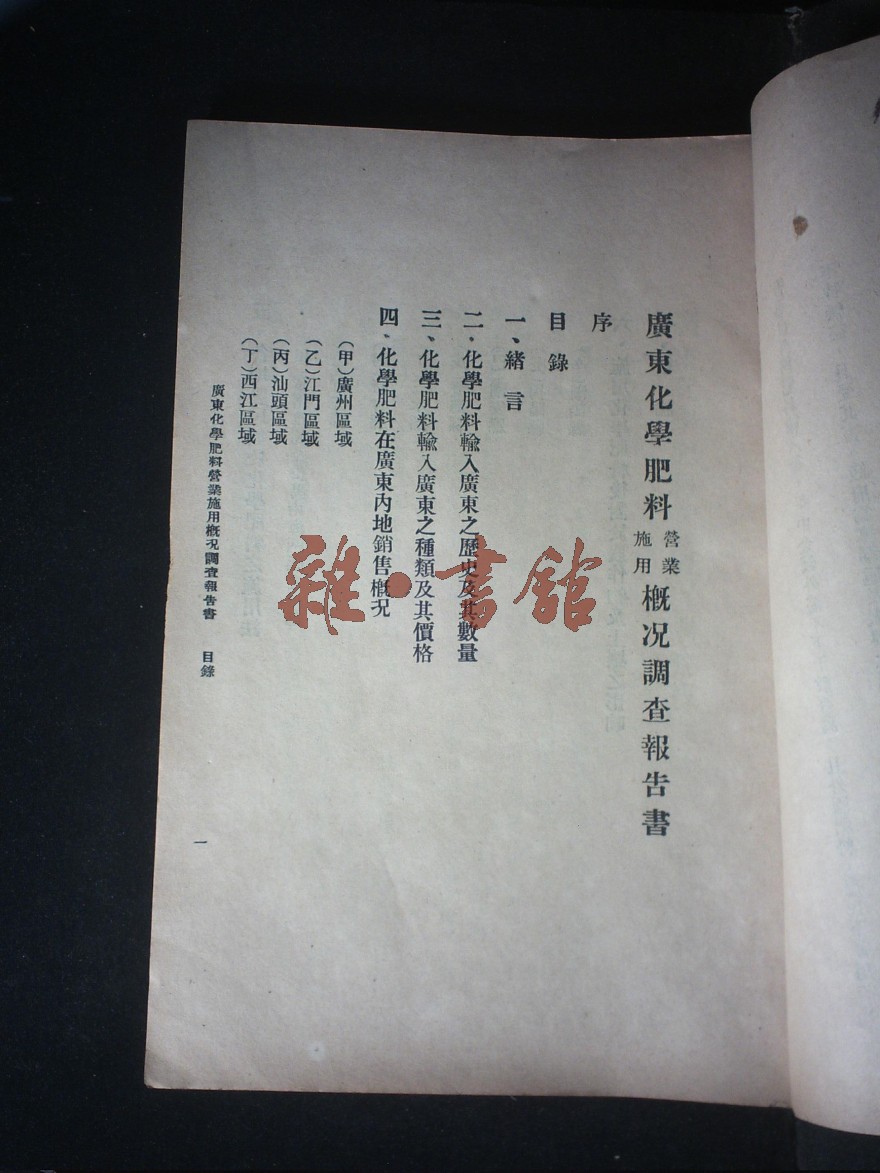 廣東化學肥料營業施用概况調查報告書
序
目錄
一、緒言
二、化學肥料輸入廣東之歷史及其數量
三、化學肥料輸入廣東之種類及其價格
四、化學肥料在廣東內地銷售概况
(甲)廣州區域
(乙)江門區域
(丙)汕頭區域
(丁)西江區域
廣東化學肥料營業施用概况調查報告書 目錄
一
雜·書館